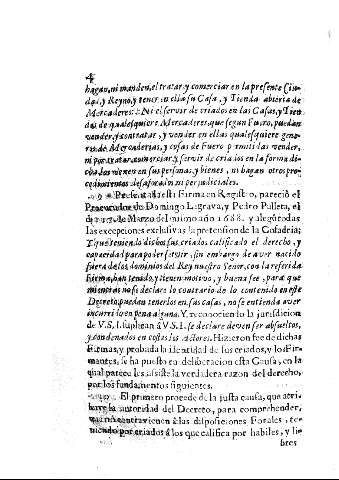 4
hagan, ni manden, el tratar, y comerciar en la presente Ciu-
dad, y Reyno, y tener en ella su Casa, y Tienda abierta de
Mercaderes: Ni el servir de criados en las Casas, y Tien
das de qualesquiere Mercaderes, que segun Fuero, puedan
vender, y contratar, y vender en ellas qualesquiere gene-
ros de Mercaderias, y cosas de Fuero permitidas vender,
ni por tratar, comerciar, y servir de criados en la forma di-
cha los vexen en sus personas, y bienes, ni hagan otros pro-
cedimientos desaforados ni perjudiciales.
9 Presentada esta Firma en Registro, pareciò el
Procurador de Domingo Ligrava, y Pedro Pallera, el
de Marzo del mismo año 1688. y alegò todas
las excepciones exclusivas la pretension de la Cofadria;
Y que teniendo dichos sus criados calificado el derecho, y
capacidad para poder servir, sin embargo de aver nacido
fuera de los dominios del Rey nuestro Señor, con la referida
Firma, han tenido, y tienen motivo, y buena fee, para que
mientras no se declare lo contrario de lo contenido en este
Decreto, puedan tenerlos en sus casas, no se entienda aver
incurrido en pena alguna. Y reconociendo la jurisdicion
de V.S.I. suplican à V.S.I. se declare deven ser absueltos,
y condenados en costas los Actores. Hizieron fee de dichas
Firmas, y probada la identidad de los criados, y los Fir-
mantes, se ha puesto en deliberacion esta Causa, en la
qual parece les assiste la verdadera razon del derecho,
por los fundamentos siguientes.
El primero procede de la justa causa, que atri-
buye la autoridad del Decreto, para comprehender,
que no contravienen à las disposiciones Forales, te-
niendo por criados à los que califica por habiles, y li-
bres